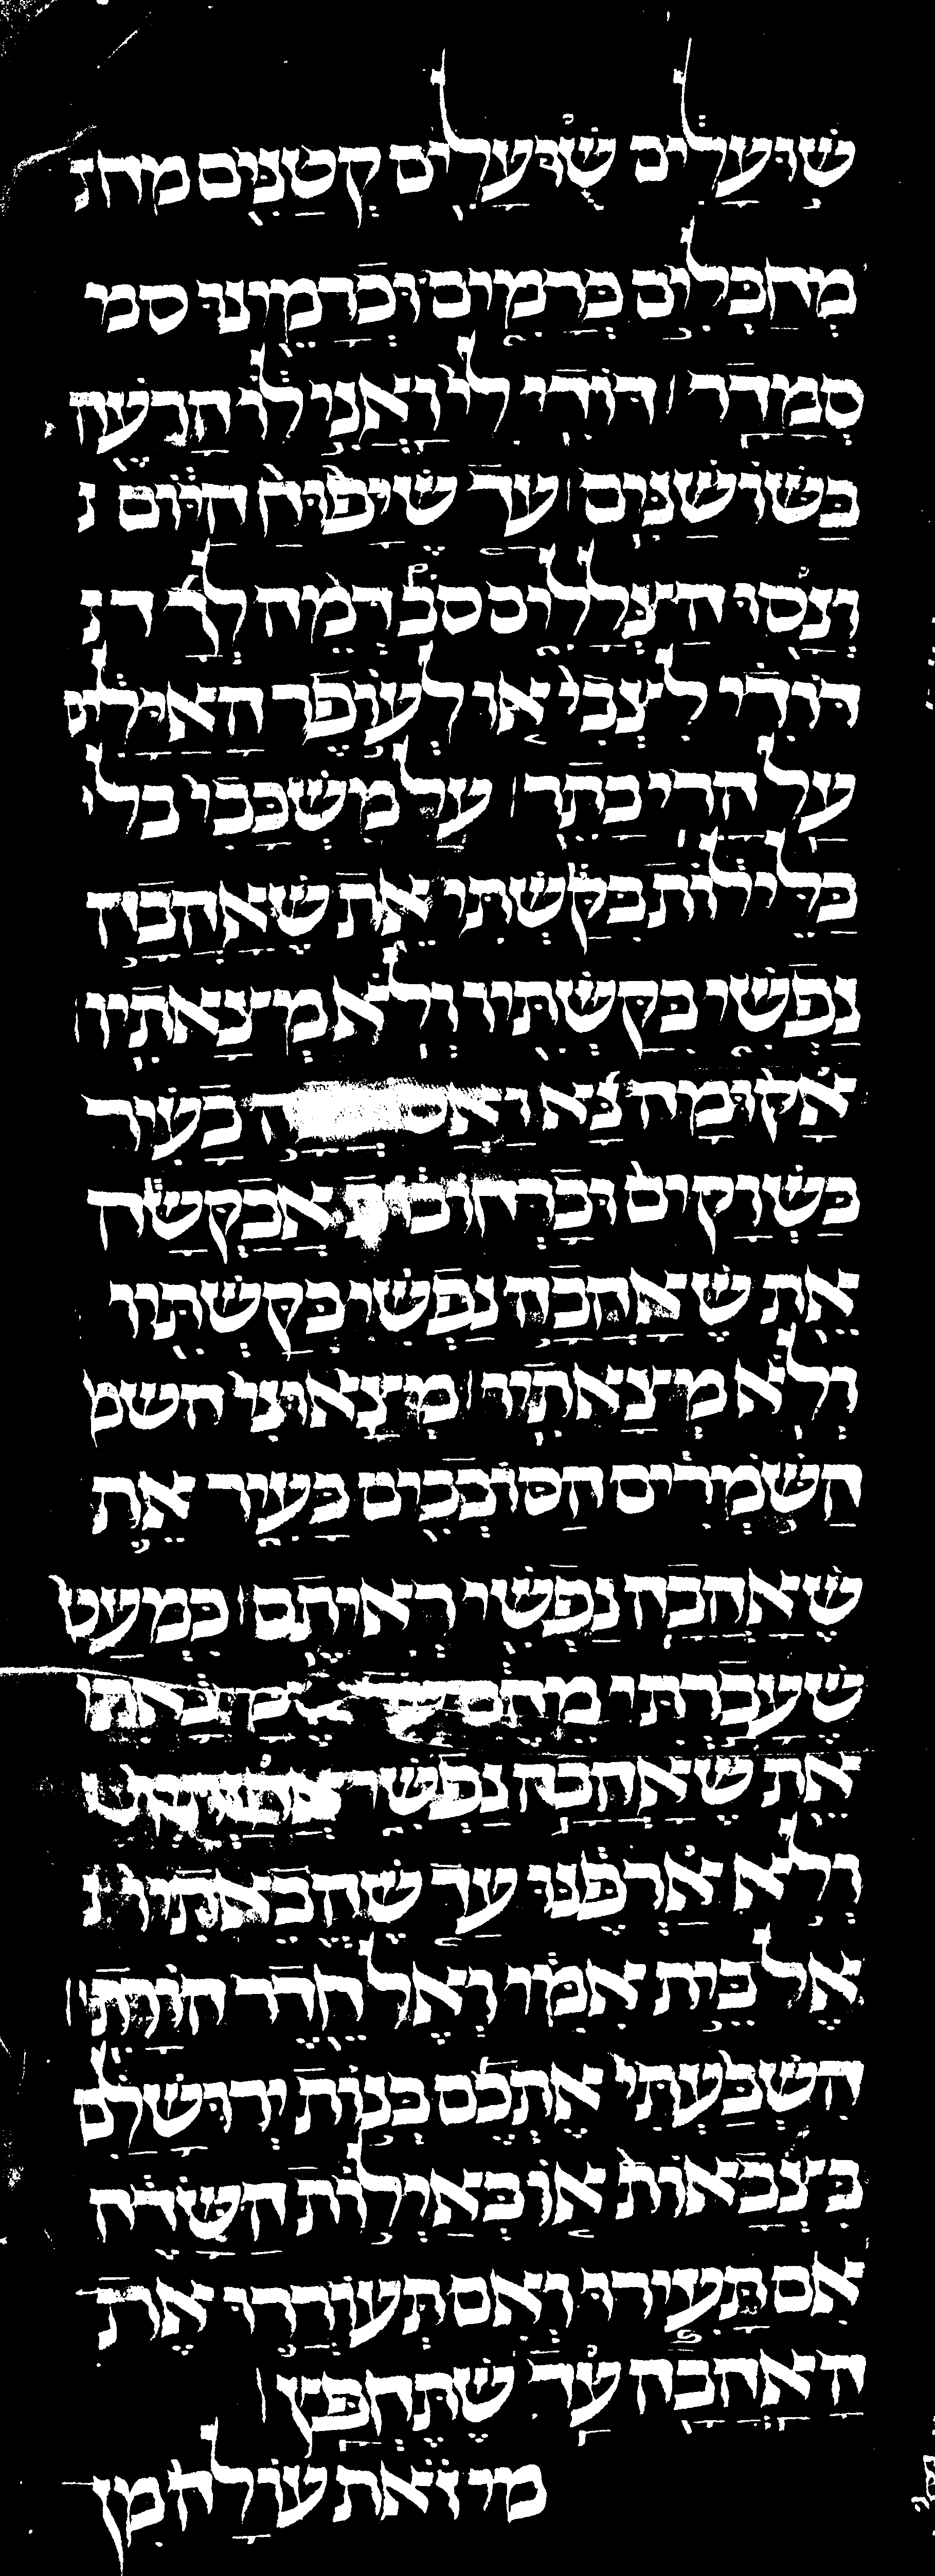 שועלים שועלים קטנים מחנ
מחבלים כרמים וכרמינו סמ
סמדר ׀ דודי לי ואני לו הרעה
בשושנים ׀ עד שיפוח היום נ
ונסו הצללים סב דמה לך ד נ
דודי לצבי או לעופר האילים
על הרי בתר ׀ על משכבי בלי
בלילות בקשתי את שאהבה
נפשי בקשתיו ולא מצאתיו ׀
אקומה נא בעיר
בשוקים וברחובות אבקשה
את שאהבה נפשי בקשתיו
ולא מצאתיו ׀ מצאוני השמ
השמרים הסובבים בעיר את
שאהבה נפשי ראיתם ׀ כמעט
שעברתי מהם
את שאהבה נפשי
ולא ארפנו עד שהבאתיו נ
אל בית אמי ואל חדר הורתי ׀
השבעתי אתכם בנות ירושלם
בצבאות או באילות השדה
אם תעירו ואם תעוררו את
האהבה עד שתחפץ ׀
מי זאת עולה מן